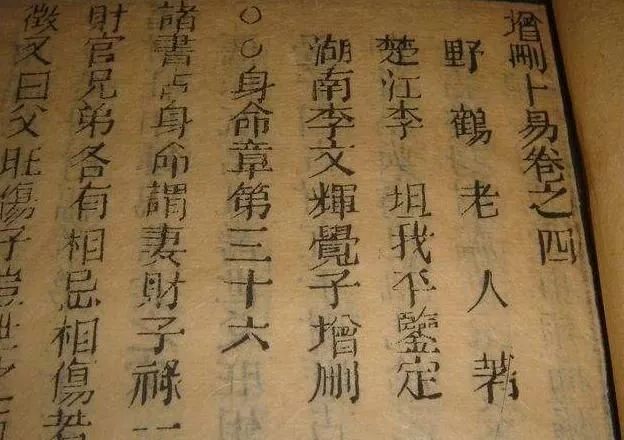 增刪卜易卷之四
野鶴老人著
楚江李坦我平鑒定
湖南李文輝覺子增刪
○○身命章第三十六
諸書占身命謂妻財子祿一
財官兄弟各有相忌相傷若
徵又曰父旺傷子豈世之